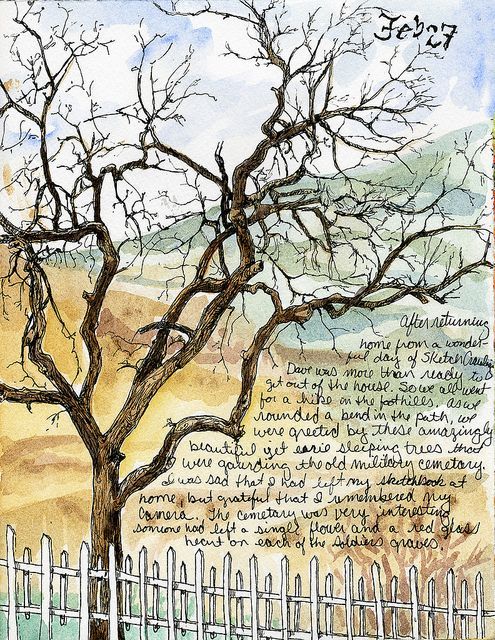 Feb 27
After returning
home from a wonder-
ful day of Sketch Crawling
Dave was more than ready to
get out of the house. So we all went
for a hike in the foothills. As we
rounded a bend in the path, we
were greeted by these amazingly
beautiful yet eerie sleeping trees that
were guarding the old military cemetary.
I was sad that I had left my sketchbook at
home, but grateful that I remembered my
camera. The cemetary was very interesting
someone had left a single flower and a red glass
heart on each of the soldiers graves.